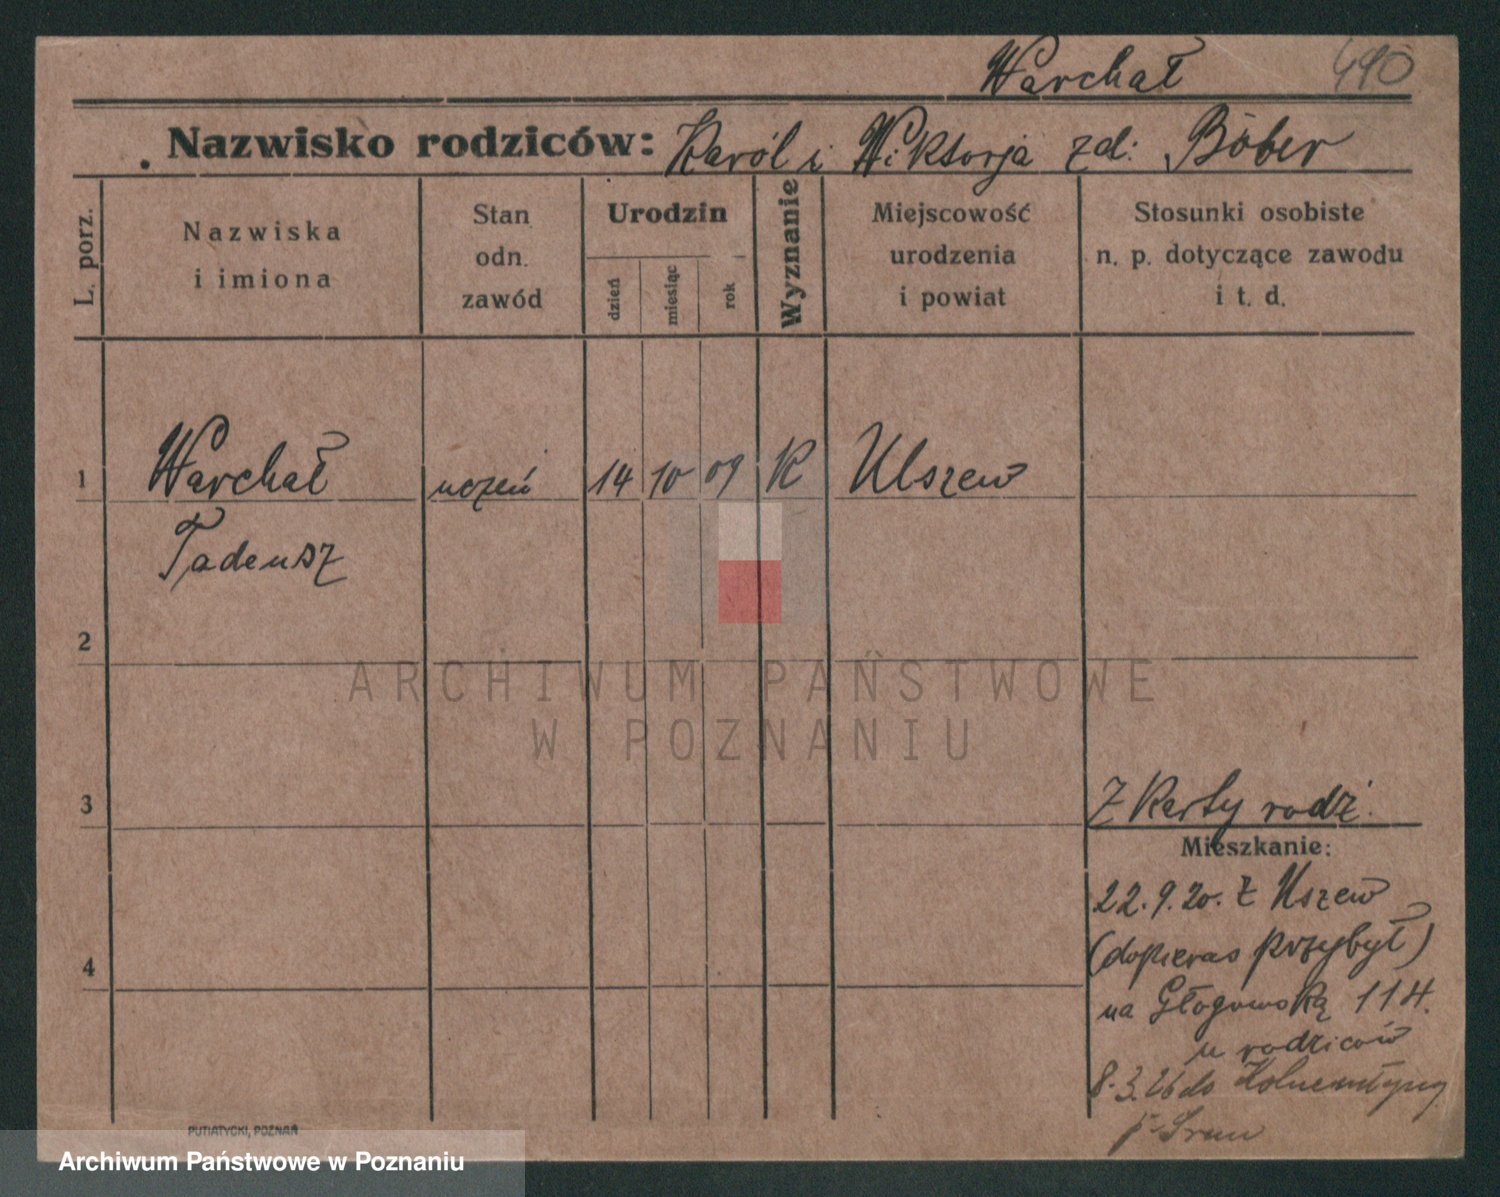 Warchał 490
Nazwisko rodziców: Karól i Wiktorja zd: Bober
L. porz.
Nazwiska
i imiona
Stan
odn.
zawód
Urodzin
dzień
miesiąc
rok
Wyznanie
Miejscowość
urodzenia
i powiat
Stosunki osobiste
n. p. dotyczące zawodu
i t. d.
1 Warchał uczeń 14 10 09 K Uszew
Tadeusz
2
ARCHIWUM PAŃSTWOWE
W POZNANIU
3 Z Karty rodz.
Mieszkanie:
22.9.20. z Uszew
(dopieras przybył)
4
na Głogowską 114.
u rodziców
8.3.26 do
p. Srem
PUTIATYCKI, POZNAŃ
Archiwum Państwowe w Poznaniu